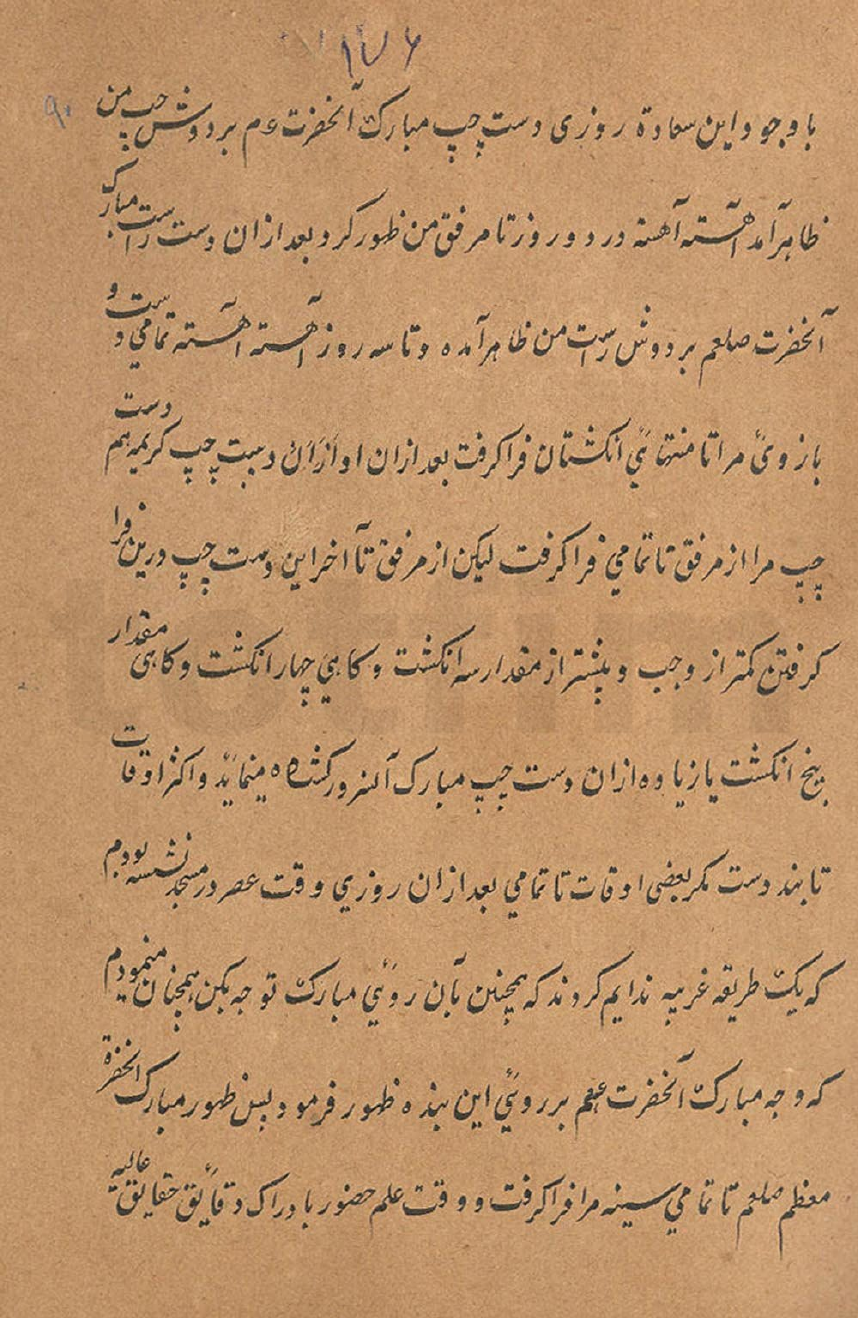 ۱۷۶
۹۰
با وجود این سعادة روزی دست چپ مبارک آنحضرت عم بر دوش چپ من
ظاهر آمد آهسته آهسته در دو روز تا مرفق من ظهور کرد بعد ازان دست راست مبارک
آنحضرت صلعم بر دوش راست من ظاهر آمده و تا سه روز آهسته آهسته تمامي دست و
بازوئ مرا تا منتهائي انکشتان فرا کرفت بعد ازان او ازان دست چپ کریمه هم دست
چپ مرا از مرفق تا تمامي فرا کرفت لیکن از مرفق تا آخر این دست چپ درین فرا
کرفتن کمتر از وجب و پیشتر از مقدار سه انکشت و کاهي چهار انکشت و کاهی مقدار
پنج انکشت یا زیاده ازان دست چپ مبارک آنسرور کشاده مینماید و اکثر اوقات
تا بند دست مکر بعضی اوقات تا تمامي بعد ازان روزي وقت عصر در مسجد نشسته بودم
که یک طریقه غریبه ندایم کردند که همچنین بآن روئي مبارک توجه بکن همچنان مینمودم
که وجه مبارک آنحضرت صلعم بر روئي این بنده ظهور فرمود پس ظهور مبارک آنحضرة
معظم صلعم تا تمامي سینه مرا فرا کرفت و وقت علم حضور بادراک دقایق حقایق عالیه